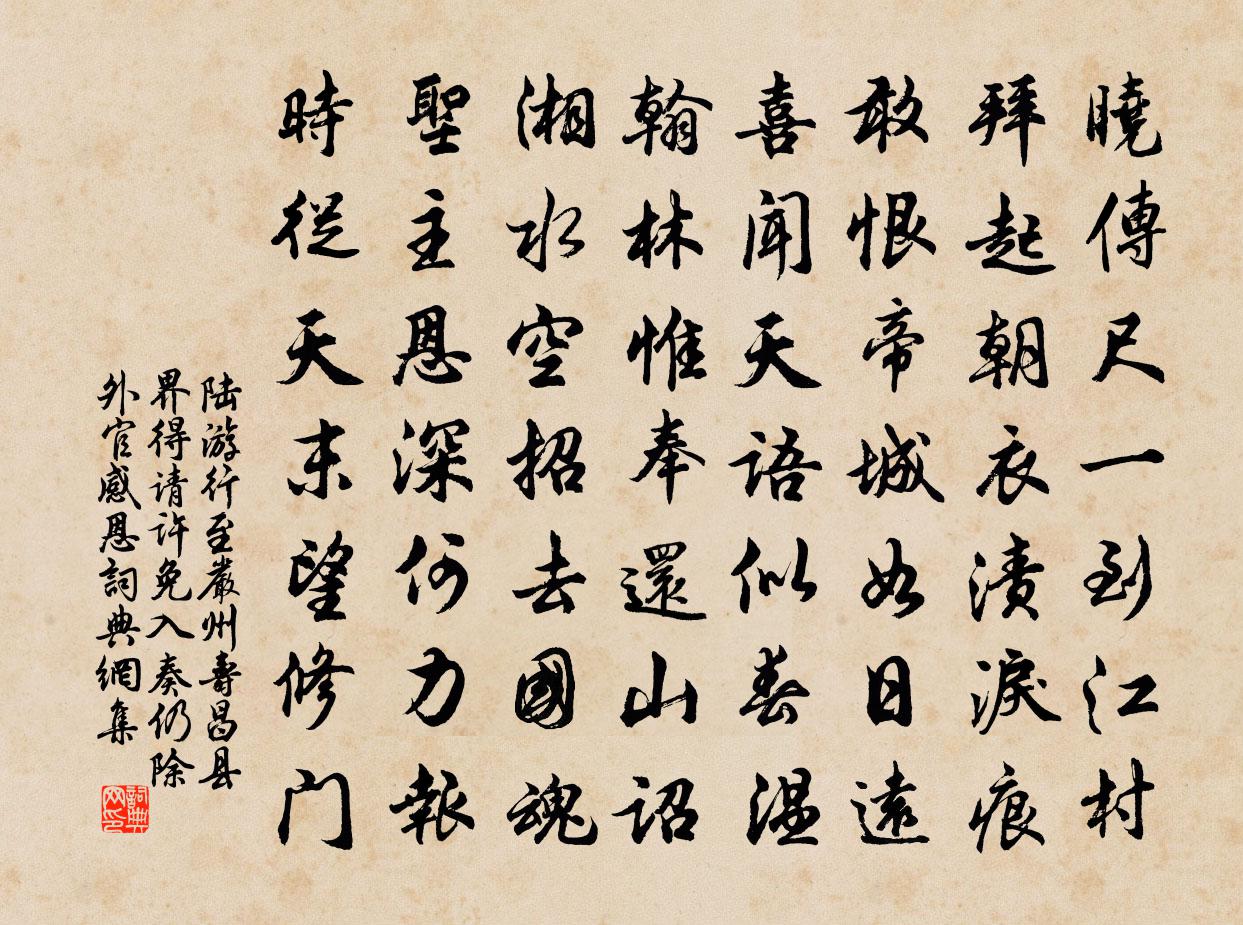 曉傳尺一到江村
拜起朝衣漬淚痕
敢恨帝城如日遠
喜聞天語似春溫
翰林惟奉還山詔
湘水空招去國魂
聖主恩深何力報
時從天末望修門
陆游行至嚴州壽昌县
界得请许免入奏仍除
外官感恩詞典網集
詞典
网印